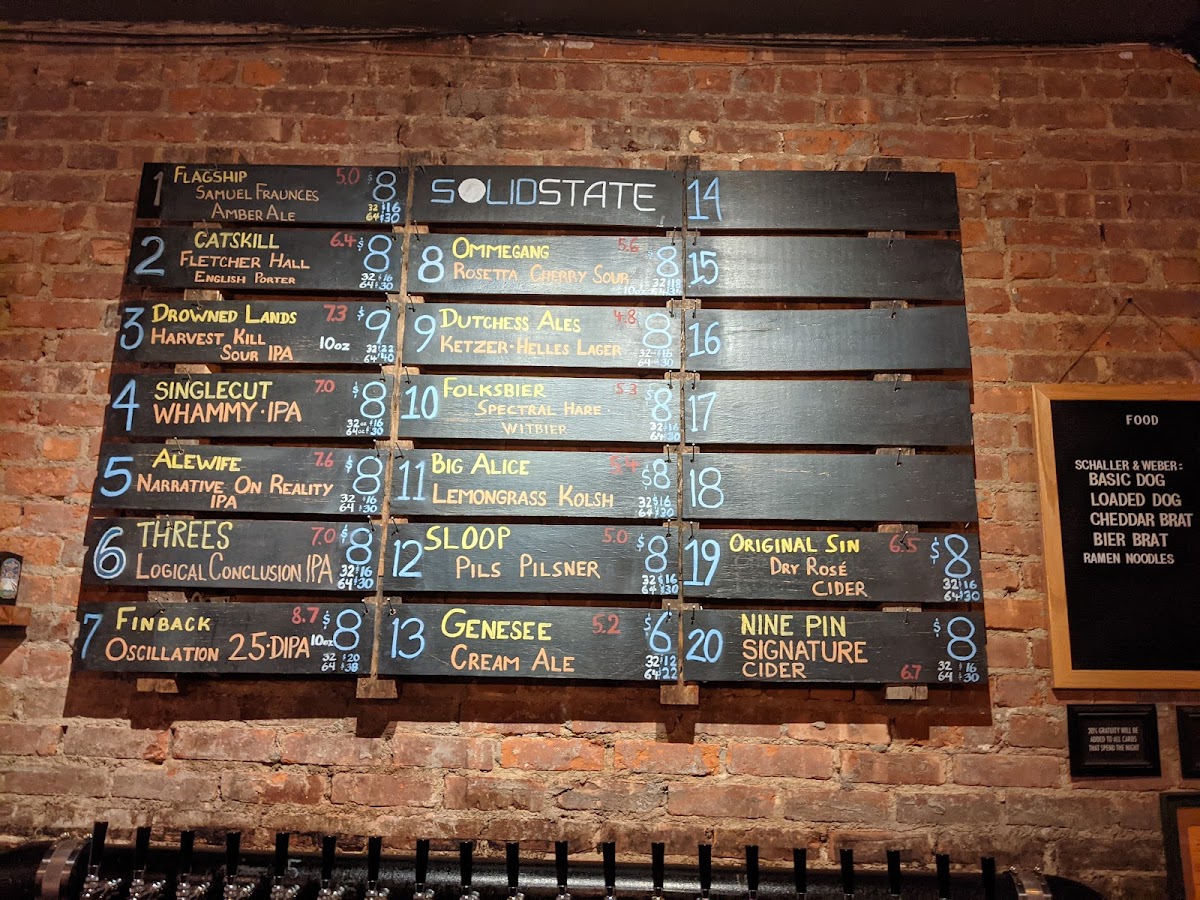 1 FLAGSHIP 5.0 $8
SAMUEL FRAUNCES 32 $16
AMBER ALE 64 $30
2 CATSKILL 6.4 $8
FLETCHER HALL 32 $16
ENGLISH PORTER 64 $30
3 DROWNED LANDS 7.3 $9
HARVEST KILL 10oz 32 $22
SOUR IPA 64 $40
4 SINGLECUT 7.0 $8
WHAMMY·IPA 32oz $16
64oz $30
5 ALEWIFE 7.6 $8
NARRATIVE ON REALITY 32 $16
IPA 64 $30
6 THREES 7.0 $8
LOGICAL CONCLUSION IPA 32 $16
64 $30
7 FINBACK 8.7 $8
OSCILLATION 25·DIPA 10oz 32 $20
64 $38
SOLIDSTATE
8 OMMEGANG 5.6 $8
ROSETTA CHERRY SOUR
10oz
9 DUTCHESS ALES 4.8 $8
KETZER·HELLES LAGER 32 $16
64 $30
10 FOLKSBIER 5.3 $8
SPECTRAL HARE· 32 $16
WITBIER 64 $30
11 BIG ALICE 5.4 $8
LEMONGRASS KOLSH 32 $16
64 $30
12 SLOOP 5.0 $8
PILS PILSNER 32 $16
64 $30
13 GENESEE 5.2 $6
CREAM ALE 32 $12
64 $22
14
15
16
17
18
19 ORIGINAL SIN 6.5 $8
DRY ROSÉ 32 $16
CIDER 64 $30
20 NINE PIN $8
SIGNATURE 32 $16
CIDER 6.7 64 $30
FOOD
SCHALLER & WEBER:
BASIC DOG
LOADED DOG
CHEDDAR BRAT
BIER BRAT
RAMEN NOODLES
20% GRATUITY WILL BE
ADDED TO ALL CARDS
THAT SPEND THE NIGHT